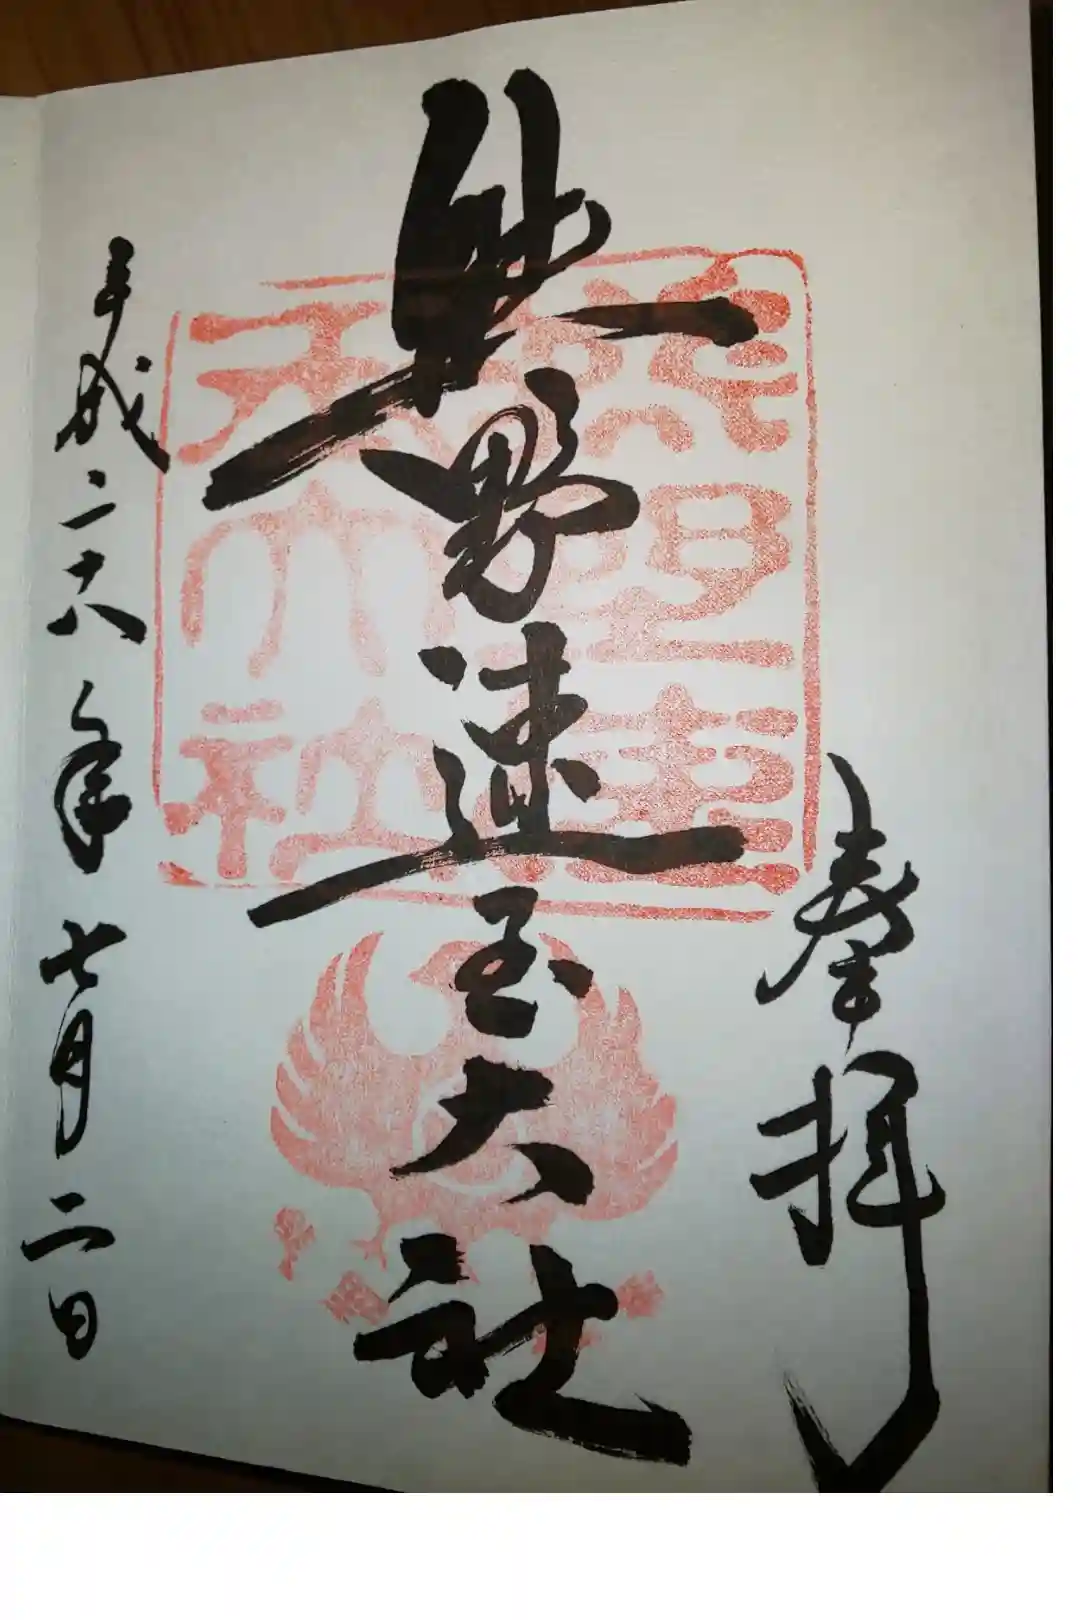 奉拝
熊野速玉大社
平成二十八年七月二日
熊野速
玉大社